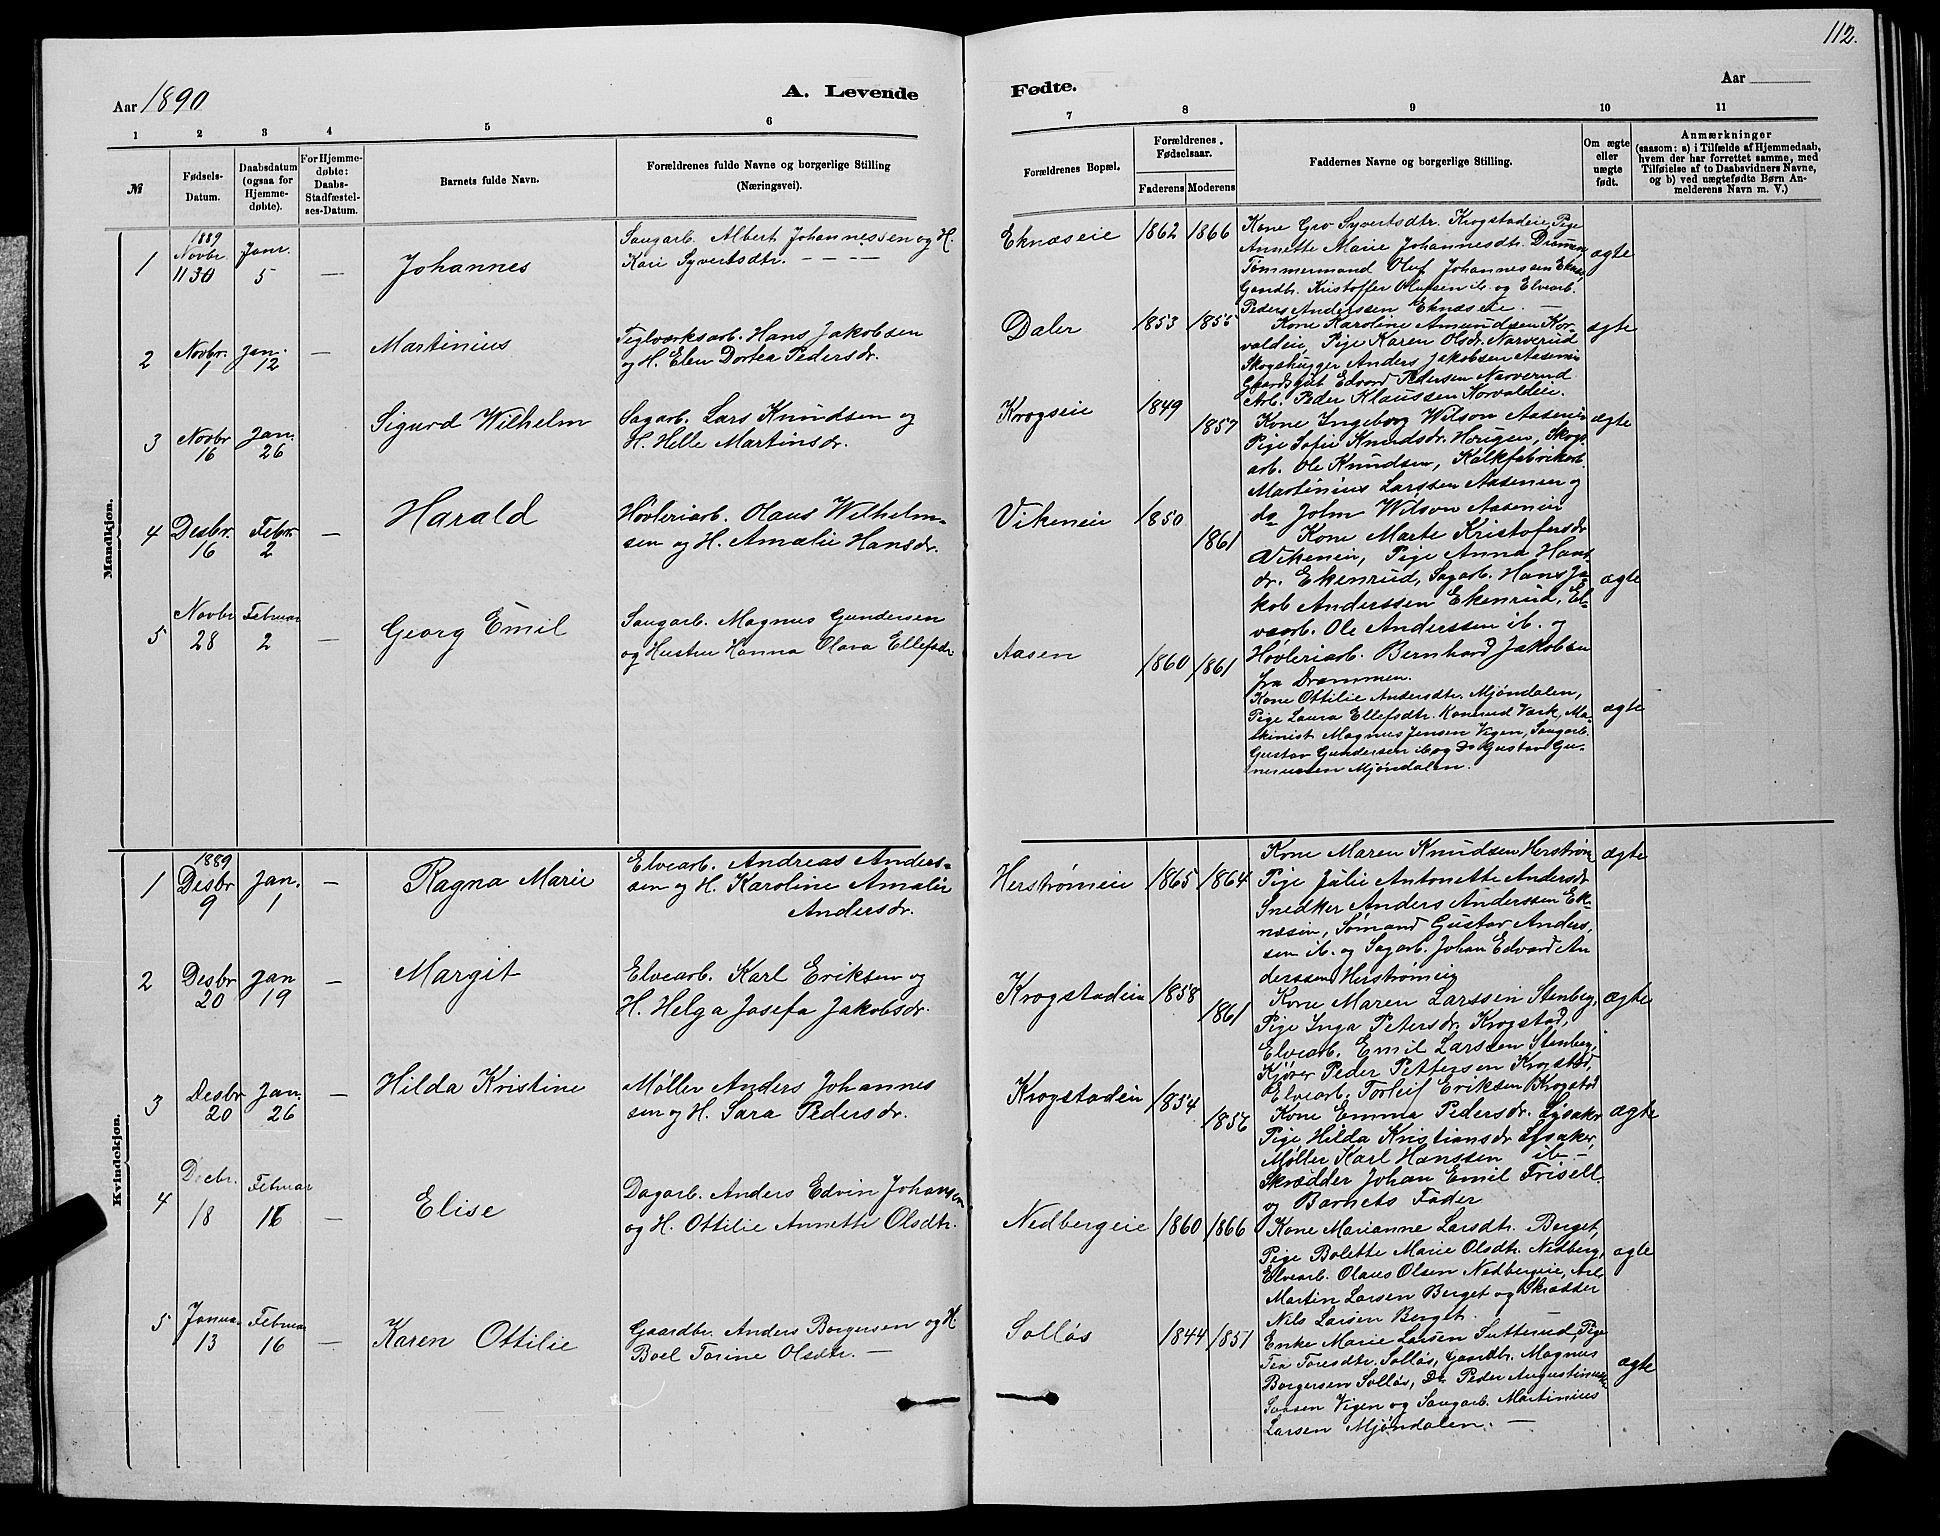 112.
Aar 1890
A. Levende
Fødte.
Aar
1 2 3 4 5 6 7 8 9 10 11
№
Fødsels-
Datum.
Daabsdatum
(ogsaa for
Hjemme-
døbte).
For Hjemme-
døbte:
Daabs-
Stadfæstel-
ses-Datum.
Barnets fulde Navn.
Forældrenes fulde Navne og borgerlige Stilling
(Næringsvei).
Forældrenes Bopæl.
Forældrenes
Fødselsaar.
Faderens Moderens
Faddernes Navne og borgerlige Stilling.
Om ægte
eller
uægte
født.
Anmærkninger
(saasom: a) i Tilfælde af Hjemmedaab,
hvem der har forrettet samme, med
Tilføielse af to Daabsvidners Navne,
og b) ved uægtefødte Børn An-
melderens Navn m. V.)
Mandkjøn.
1
1889
Novbr.
30
Janr.
5
—
Johannes
Saugarb. Albert Johannessen og H.
Kari Syvertsdtr. — — — —
Eknæseie
1862 1866
Kone Gro Syvertsdtr. Krogstadeie, Pige
Annette Marie Johannesdtr. Drammen,
Tømmermand Oluf Johannessen Eknæs,
Gaardbr. Kristoffer Olufsen ib. og Elvearb.
Peder Anderssen Eknæseie. —
ægte
2
Novbr.
1
Jan.
12
—
Martinius
Teglværksarb. Hans Jakobsen
og H. Elen Dortea Pedersdr.
Daler
1853 1855
Kone Karoline Amundsen Kor-
valdeie, Pige Karen Olsdr. Narverud
Skogshugger Anders Jakobsen Aasenei
Edvard Pedersen Narverud
Arb. Peder Klaussen Korvaldeie.
ægte
3
Novbr
16
Jan.
26
Sigurd Wilhelm
Sagarb. Lars Knudsen og
H. Helle Martinsdr.
Krogseie
1849
1857
Kone Ingeborg Wilson Aasenei
Pige Sofie Knudsdr. Hougen, Skogs-
arb. Ole Knudsen, Kalkfabrikarb.
Martinius Larssen Aasenei og
do John Wilson Aasenei
ægte
4
Desbr.
16
Febr.
2
—
Harald
Høvleriarb. Olaus Wilhelm-
sen og H. Amalie Hansdr.
Vikeneie
1850
1861
Kone Marte Kristofersdr
Vikeneie, Pige Anna Hans-
dr. Ekenrud, Sagarb. Hans Ja-
kob Anderssen Ekenrud, El-
vearb. Ole Anderssen ib. og
Høvleriarb. Bernhard Jakobsen
fra Drammen.
ægte
5
Novbr
28
Februar
2
—
Georg Emil
Saugarb. Magnus Gundersen
og Hustru Hanna Olava Ellefsdr
Aasen
1860 1861
Kone Ottilie Andersdtr. Mjøndalen,
Pige Laura Ellefsdtr. Konerud Værk, Ma-
skinist Magnus Jensen Vigen, Saugarb.
Gustav Gundersen ib. og Do Gustav Gu-
nerussen Mjøndalen.
ægte
Kvindekjøn.
1
1889
Desbr
9
Jan.
1
—
Ragna Marie
Elvearb. Andreas Anders-
sen og H. Karoline Amalie
Andersdr.
Herstrømeie
1865 1864
Kone Maren Knudsen Herstrøm
Pige Julie Antonette Andersdr
Snedker Anders Anderssen Ek-
næseie, Sømand Gustav Anders-
sen ib. og Sagarb. Johan Edvard An-
derssen Herstrømeie
ægte
2
Desbr
20
Jan
19
—
Margit
Elvearb. Karl Eriksen og
H. Helga Josefa Jakobsdr.
Krogstadeie
1858
1861
Kone Maren Larssen Stenberg,
Pige Inga Petersdr. Krogstad,
Elvearb. Emil Larssen Stenberg,
Kjører Peder Pettersen Krogstad,
Elvearb. Torleif Eriksen Krogstad
ægte
3
Desbr
20
Jan.
26
—
Hilda Kristine
Møller Anders Johannes
sen og H. Sara Pedersdr.
Krogstadeie
1854
1856
Kone Emma Pedersdr. Lysaker
Pige Hilda Kristiansdr Lysaker,
Møller Karl Hanssen ib —
Skrædder Johan Emil Frisell
og Barnets Fader
ægte
4
Decbr.
18
Februar
16
—
Elise
Dagarb. Anders Edvin Johansen
og H. Ottilie Annette Olsdtr.
Nedbergeie
1860 1866
Kone Marianne Larsdtr. Berget,
Pige Bolette Marie Olsdtr. Nedberg,
Elvearb. Olaus Olsen Nedbergeie, Arb.
Martin Larsen Berget og Skrædder
Nils Larsen Berget.
ægte
5
Januar
13
Februar
16
—
Karen Ottilie
Gaardbr. Anders Borgersen og H
Boel Torine Olsdtr. —
Solløs
1844 1851
Enke Marie Larsen Sutterud, Pige
Tea Toresdtr. Solløs, Gaardbr. Magnus
Borgersen Solløs, Do Peder Augustinus
Vigen og Saugarb. Martinius
Larsen Mjøndalen. —
ægte